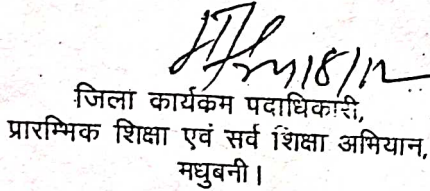 18/12
जिला कार्यकम पदाधिकारी,
प्रारम्भिक शिक्षा एवं सर्व शिक्षा अभियान,
मधुबनी।